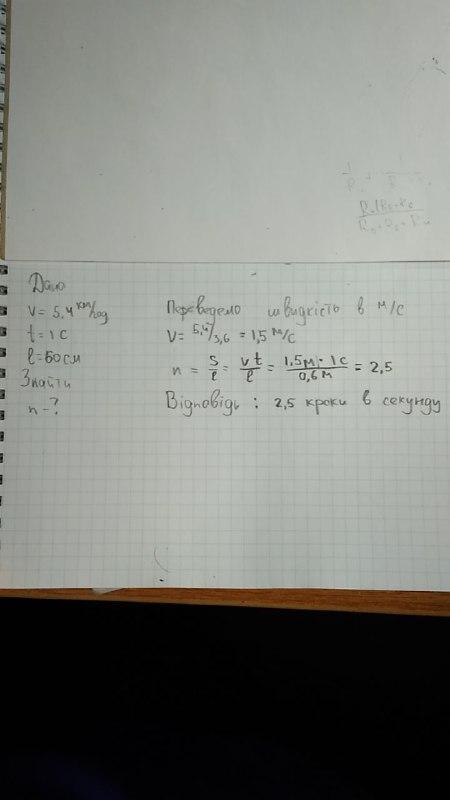 Дано
V = 5,4 км/год
t = 1 с
l = 60 см
Знайти
n - ?
Переведемо швидкість в м/с
V = 5,4/3,6 = 1,5 м/с
n = S/l = Vt/l = 1,5м · 1с/0,6м = 2,5
Відповідь : 2,5 кроки в секунду